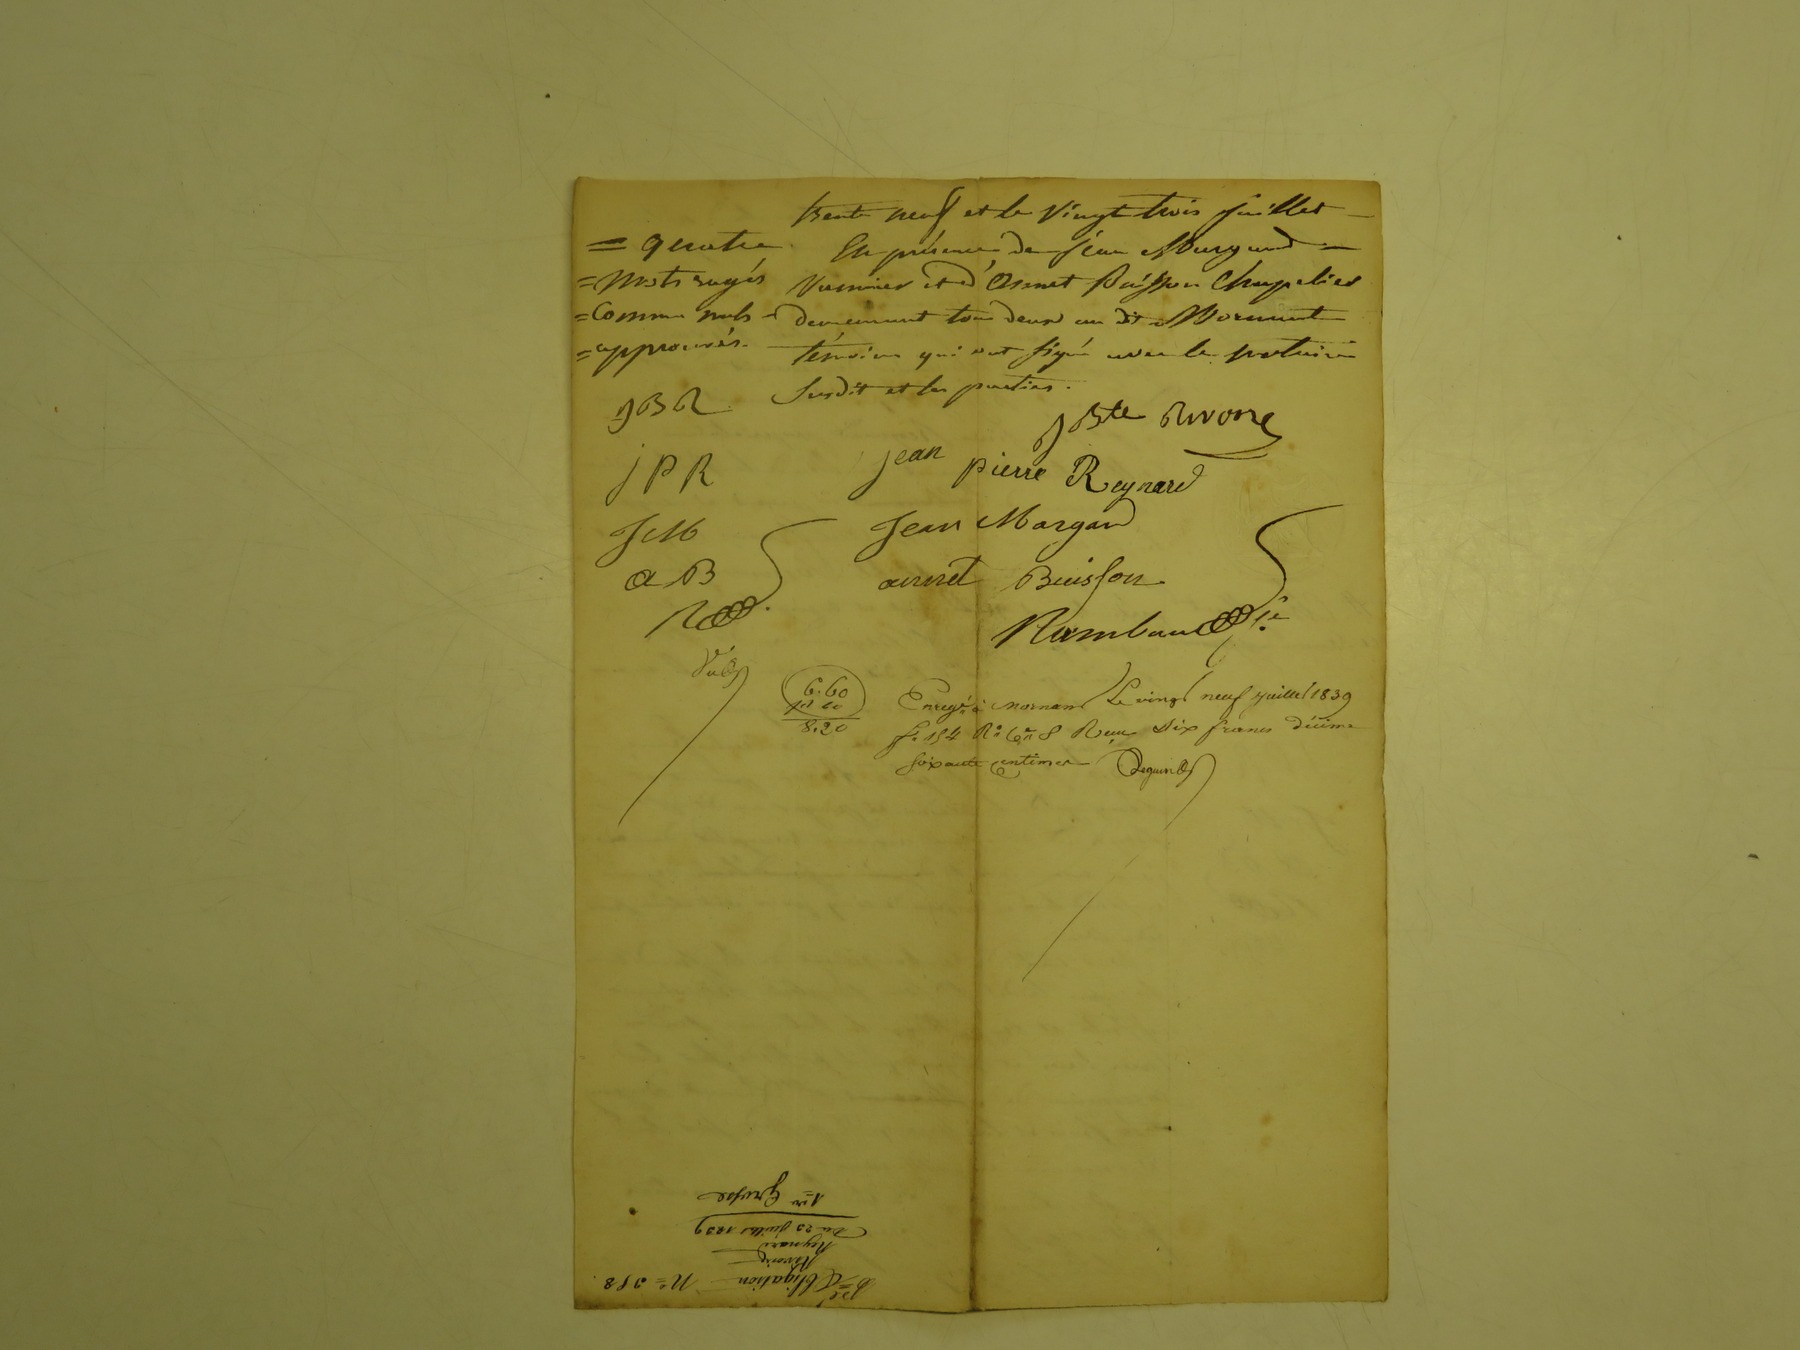 trente neuf et le vingt trois juillet
En présence de Jean Margand
Vannier et d'Annet Buisson Chapelier
demeurant tous deux au dit Mornant
témoins qui ont signé avec le notaire
susdit et les parties.
= quatre
= mots rayés
= comme nuls
= approuvés.
JBR
JPR
JM
aB
R
JBte Rivoire
jean pierre Reynard
Jean Margand
annet Buisson
Rambaud
6.60
8.20
Enregé à Mornant Le vingt neuf juillet 1839
fo 154 Ro Ce 8 Reçu Six francs décime
soixante centimes
Pé Dé Obligation No 258.
Rivoire
Reynard
Du 23 juillet 1839
1ere Grosse